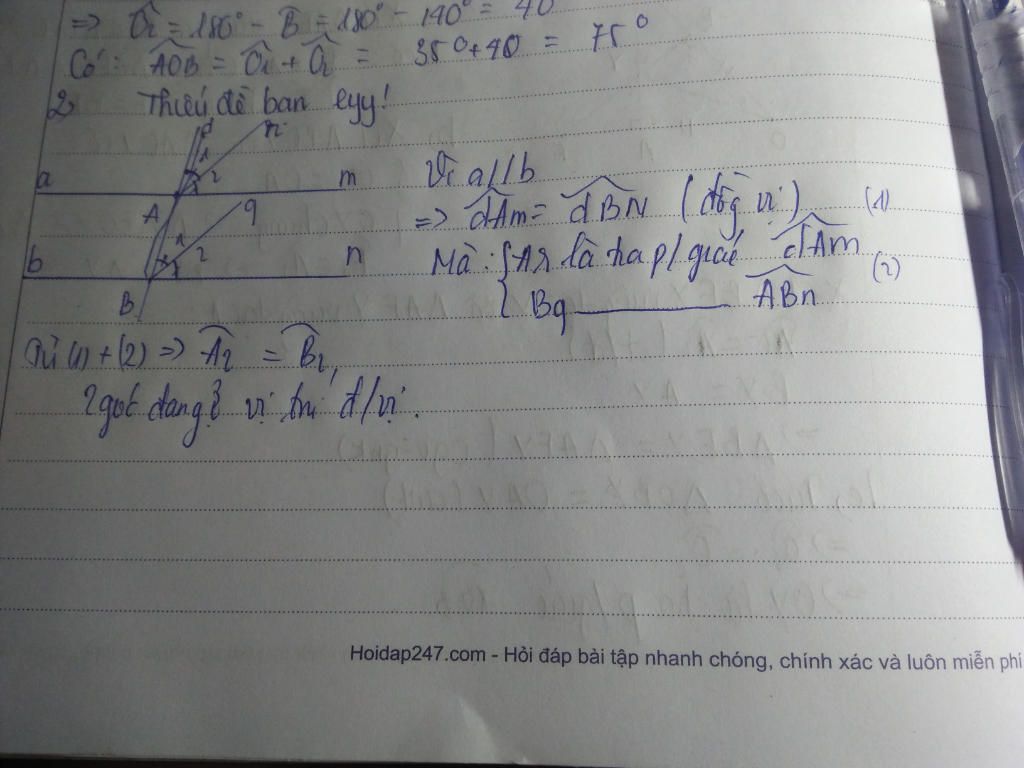 => Ô₂ = 180° - B̂ = 180° - 140° = 40
Có: AOB = Ô₁ + Ô₂ = 35° + 40 = 75°
2, Thiếu đề bạn eyy!
d
1
2
a
m
A
q
1
2
b
n
B
Vì a//b
=> dAm = dBN (đồg vị) (1)
Mà: { là tia p/giác dAm
{ Bq ——— ABn (2)
Từ (1) + (2) => Â₂ = B̂₂,
2 góc đang ở vị trí đ/vị.
Hoidap247.com - Hỏi đáp bài tập nhanh chóng, chính xác và luôn miễn phí